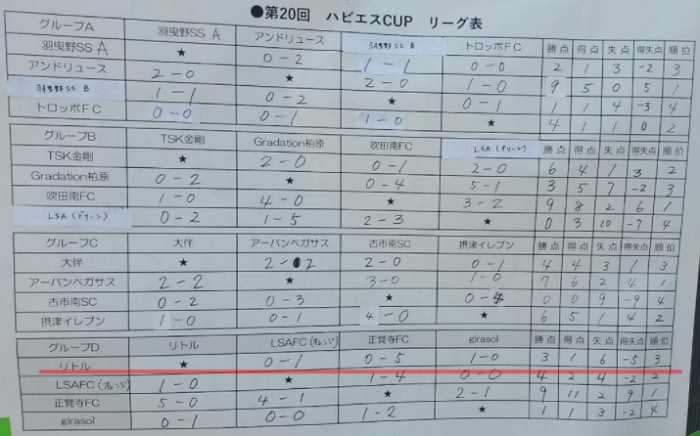 ●第20回 ハビエスCUP リーグ表
グループA 羽曳野SS A アンドリュース 羽曳野SS B トロッポFC 勝点 得点 失点 得失点 順位
羽曳野SS A ★ 0-2 1-1 0-0 2 1 3 -2 3
アンドリュース 2-0 ★ 2-0 1-0 9 5 0 5 1
羽曳野SS B 1-1 0-2 ★ 0-1 1 1 4 -3 4
トロッポFC 0-0 0-1 1-0 ★ 4 1 1 0 2
グループB TSK金剛 Gradation柏原 吹田南FC LSA(グリーン) 勝点 得点 失点 得失点 順位
TSK金剛 ★ 2-0 0-1 2-0 6 4 1 3 2
Gradation柏原 0-2 ★ 0-4 5-1 3 5 7 -2 3
吹田南FC 1-0 4-0 ★ 3-2 9 8 2 6 1
LSA(グリーン) 0-2 1-5 2-3 ★ 0 3 10 -7 4
グループC 大伴 アーバンペガサス 古市南SC 摂津イレブン 勝点 得点 失点 得失点 順位
大伴 ★ 2-2 2-0 0-1 4 4 3 1 3
アーバンペガサス 2-2 ★ 3-0 1-0 7 6 2 4 1
古市南SC 0-2 0-3 ★ 0-4 0 0 9 -9 4
摂津イレブン 1-0 0-1 4-0 ★ 6 5 1 4 2
グループD リトル LSAFC(オレンジ) 正覚寺FC girasol 勝点 得点 失点 得失点 順位
リトル ★ 0-1 0-5 1-0 3 1 6 -5 3
LSAFC(オレンジ) 1-0 ★ 1-4 0-0 4 2 4 -2 2
正覚寺FC 5-0 4-1 ★ 2-1 9 11 2 9 1
girasol 0-1 0-0 1-2 ★ 1 1 3 -2 4